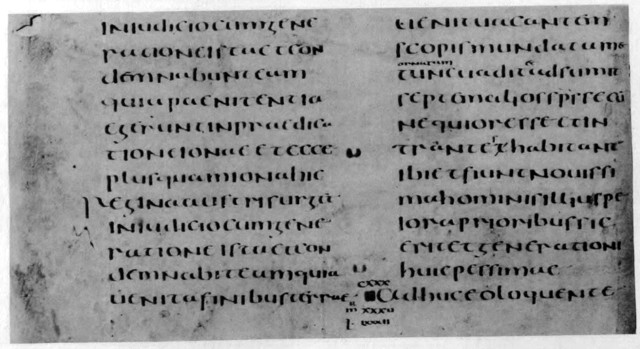 iniudiciocumgene
rationeistaetcon
demnabunteam
quiapaenitentia
egeruntinpraedica
tioneionaeetecce
plusquamionahic
Reginaaustrisurget
iniudiciocumgene
rationeistaetcon
demnabiteamquia
uenitafinibusterrae
uenituacantem
scopismundatam
ornatam
tuncuaditetadsumit
septemaliosspssecu
nequioresseetin
habitant
ibietfiuntnouissi
mahominisilliuspe
ioraprioribussic
eritetgenerationi
huicpessimae
CXXX
Adhuceoloquente